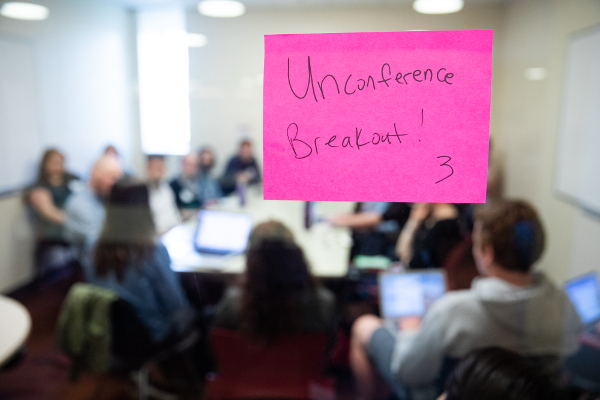 Unconference
Breakout!
3